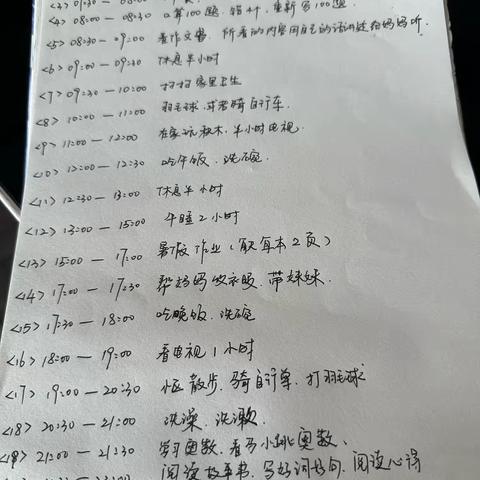 <4> 08:00 — 08:30 口算100题. 错1个, 重新写100题.
<5> 08:30 — 09:00 看作文书. 所看的内容用自己的话讲述给妈妈听.
<6> 09:00 — 09:30 休息半小时
<7> 09:30 — 10:00 打扫家里卫生
<8> 10:00 — 11:00 羽毛球. 或者骑自行车.
<9> 11:00 — 12:00 在家玩积木. 半小时电视.
<10> 12:00 — 12:30 吃午饭. 洗碗.
<11> 12:30 — 13:00 休息半小时
<12> 13:00 — 15:00 午睡2小时
<13> 15:00 — 17:00 暑假作业 (每本2页)
<14> 17:00 — 17:30 帮妈妈收衣服. 带妹妹.
<15> 17:30 — 18:00 吃晚饭. 洗碗
<16> 18:00 — 19:00 看电视1小时
<17> 19:00 — 20:30 散步. 骑自行车. 打羽毛球
<18> 20:30 — 21:00 洗澡. 洗漱.
<19> 21:00 — 21:30 学习奥数. 看马小跳奥数.
阅读故事书. 写好词好句. 阅读心得